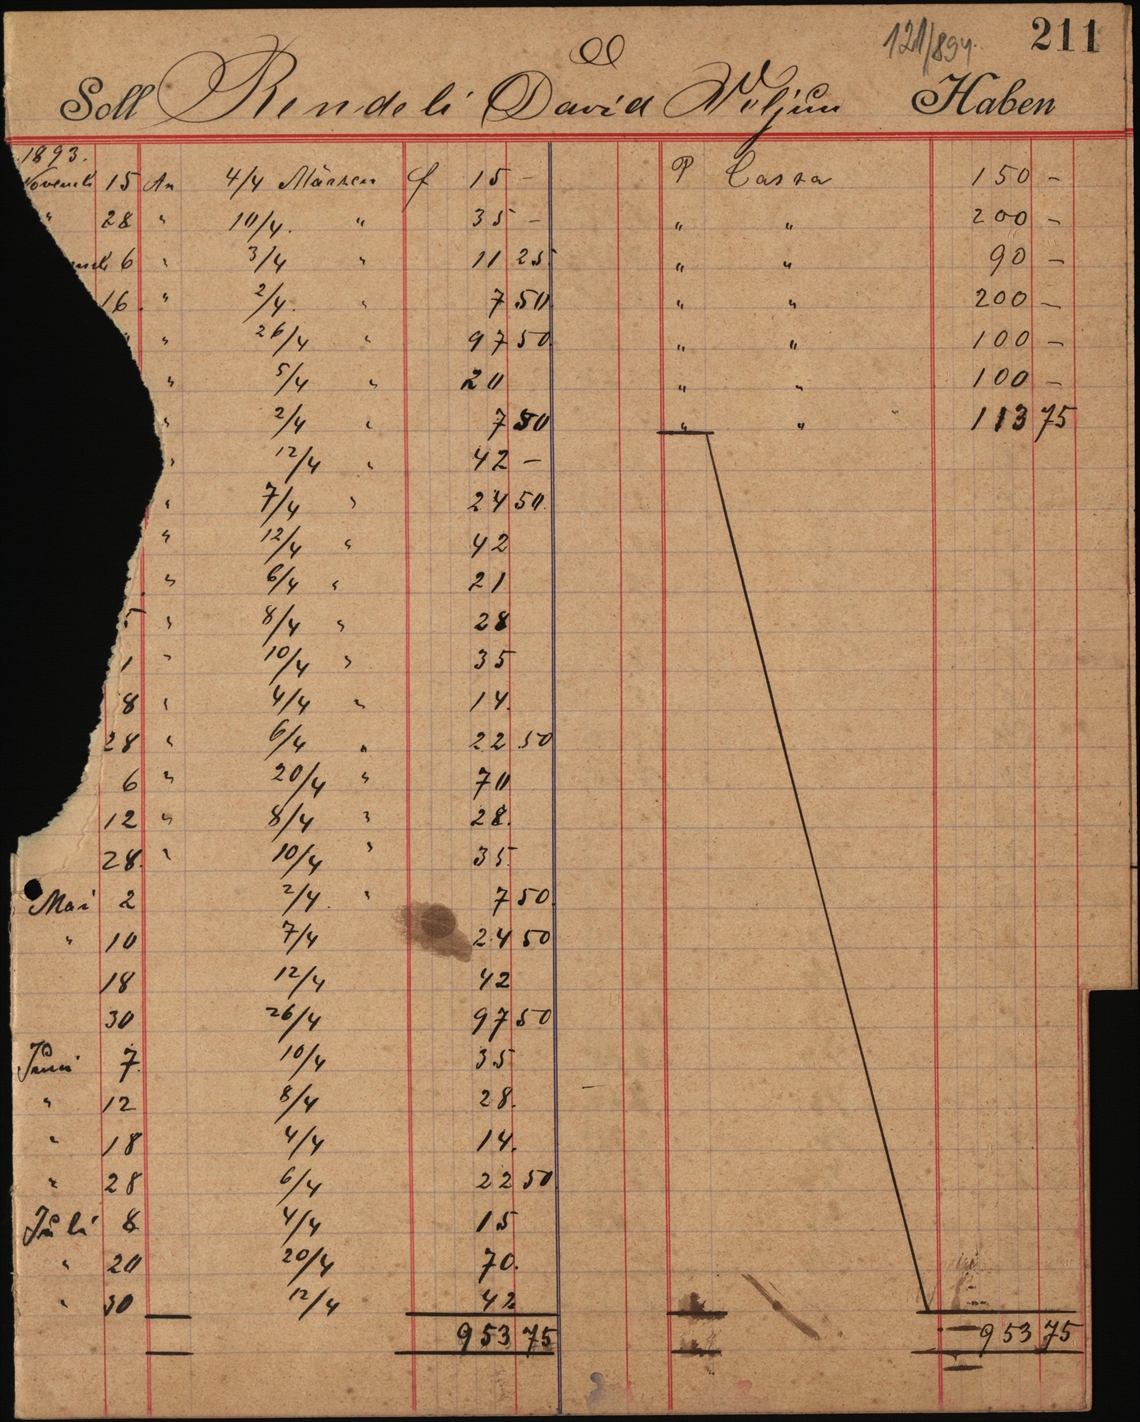 121/894. 211
Soll Rendeli David Völjun Haben
1893.
15 An 4/4 Märzen f 15 – P Cassa 150 –
" 28 " 10/4. " 35 – " " 200 –
6 " 3/4 " 11 25 " " 90 –
16. " 2/4. " 7 50 " " 200 –
" 26/4 " 97 50 " " 100 –
" 5/4 " 20 " " 100 –
" 2/4 " 7 50 " " 113 75
" 12/4 " 42 –
" 7/4 " 24 50
" 12/4 " 42
" 6/4 " 21
5 " 8/4 " 28
1 " 10/4 " 35
8 " 4/4 " 14.
28 " 6/4 " 22 50
6 " 20/4 " 70
12 " 8/4 " 28.
28. " 10/4 " 35
Mai 2 2/4. " 7 50
" 10 7/4 24 50
18 12/4 42
30 26/4 97 50
Juni 7. 10/4 35
" 12 8/4 28.
" 18 4/4 14.
" 28 6/4 22 50
Juli 8 4/4 15
" 20 20/4 70.
" 30 12/4 42
953 75 953 75